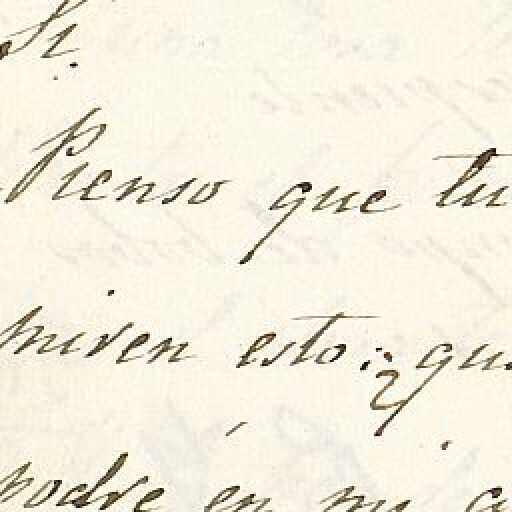 Si.
Pienso que tu
miren esto: ¿ qu
podré en mi